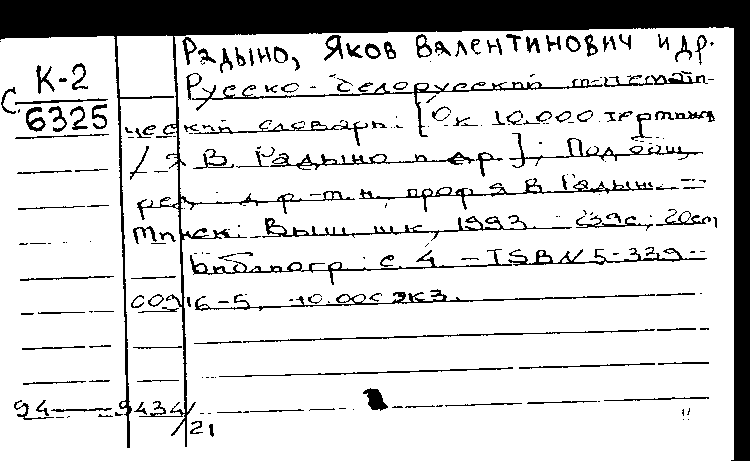 Радыно, Яков Валентинович и др.
К-2
Русско-белорусский математи-
С 6325
ческий словарь: [Ок 10.000 терминов
/ Я В. Радыно и др.]; Под общ,
ред. д. ф.-м. н., проф Я В. Радыно. -
Минск: Выш. шк, 1993. - 239с; 20см
Библиогр: с 4. - ISBN 5-339-
00916-5, 10.000 экз.
94 — 9434/
/21